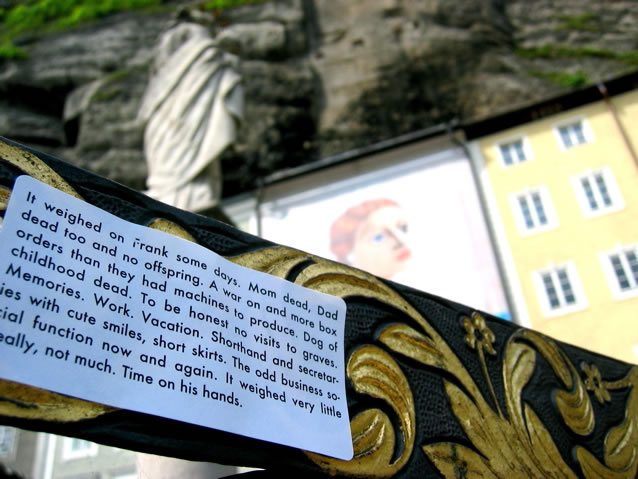 It weighed on Frank some days. Mom dead, Dad
dead too and no offspring. A war on and more box
orders than they had machines to produce. Dog of
childhood dead. To be honest no visits to graves.
Memories. Work. Vacation. Shorthand and secretar-
ies with cute smiles, short skirts. The odd business so-
cial function now and again. It weighed very little
really, not much. Time on his hands.